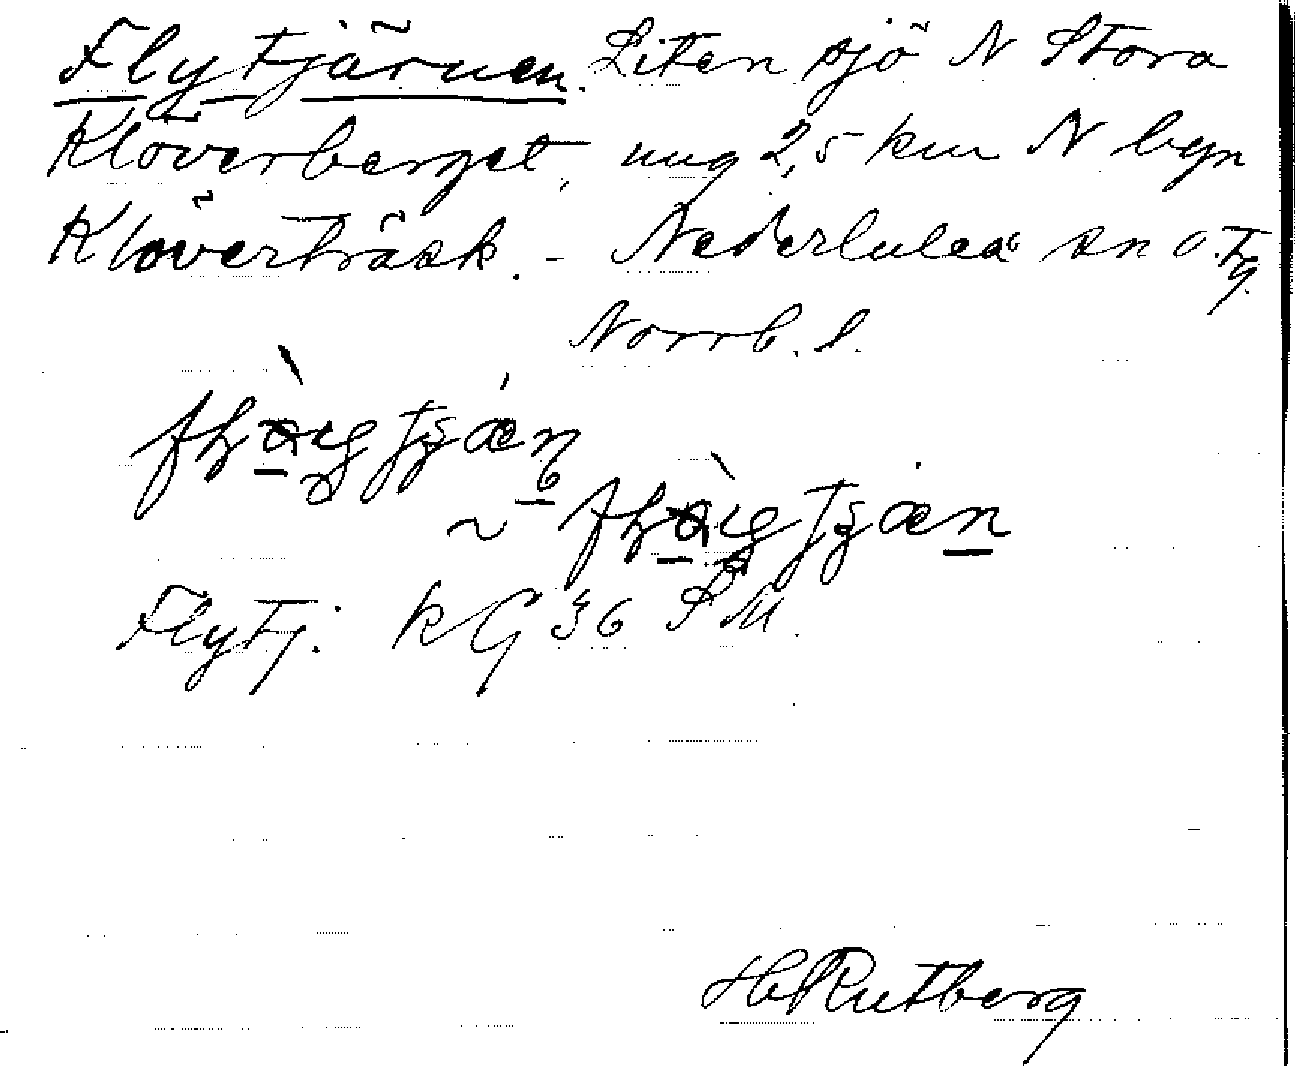 Flytjärnen. Liten sjö N Stora
Klöverberget, ung 2,5 km N byn
Klöverträsk. - Nederluleå sn o. tg.
Norrb. l.
~
Flytj. KG 36 SM.
H Rutberg